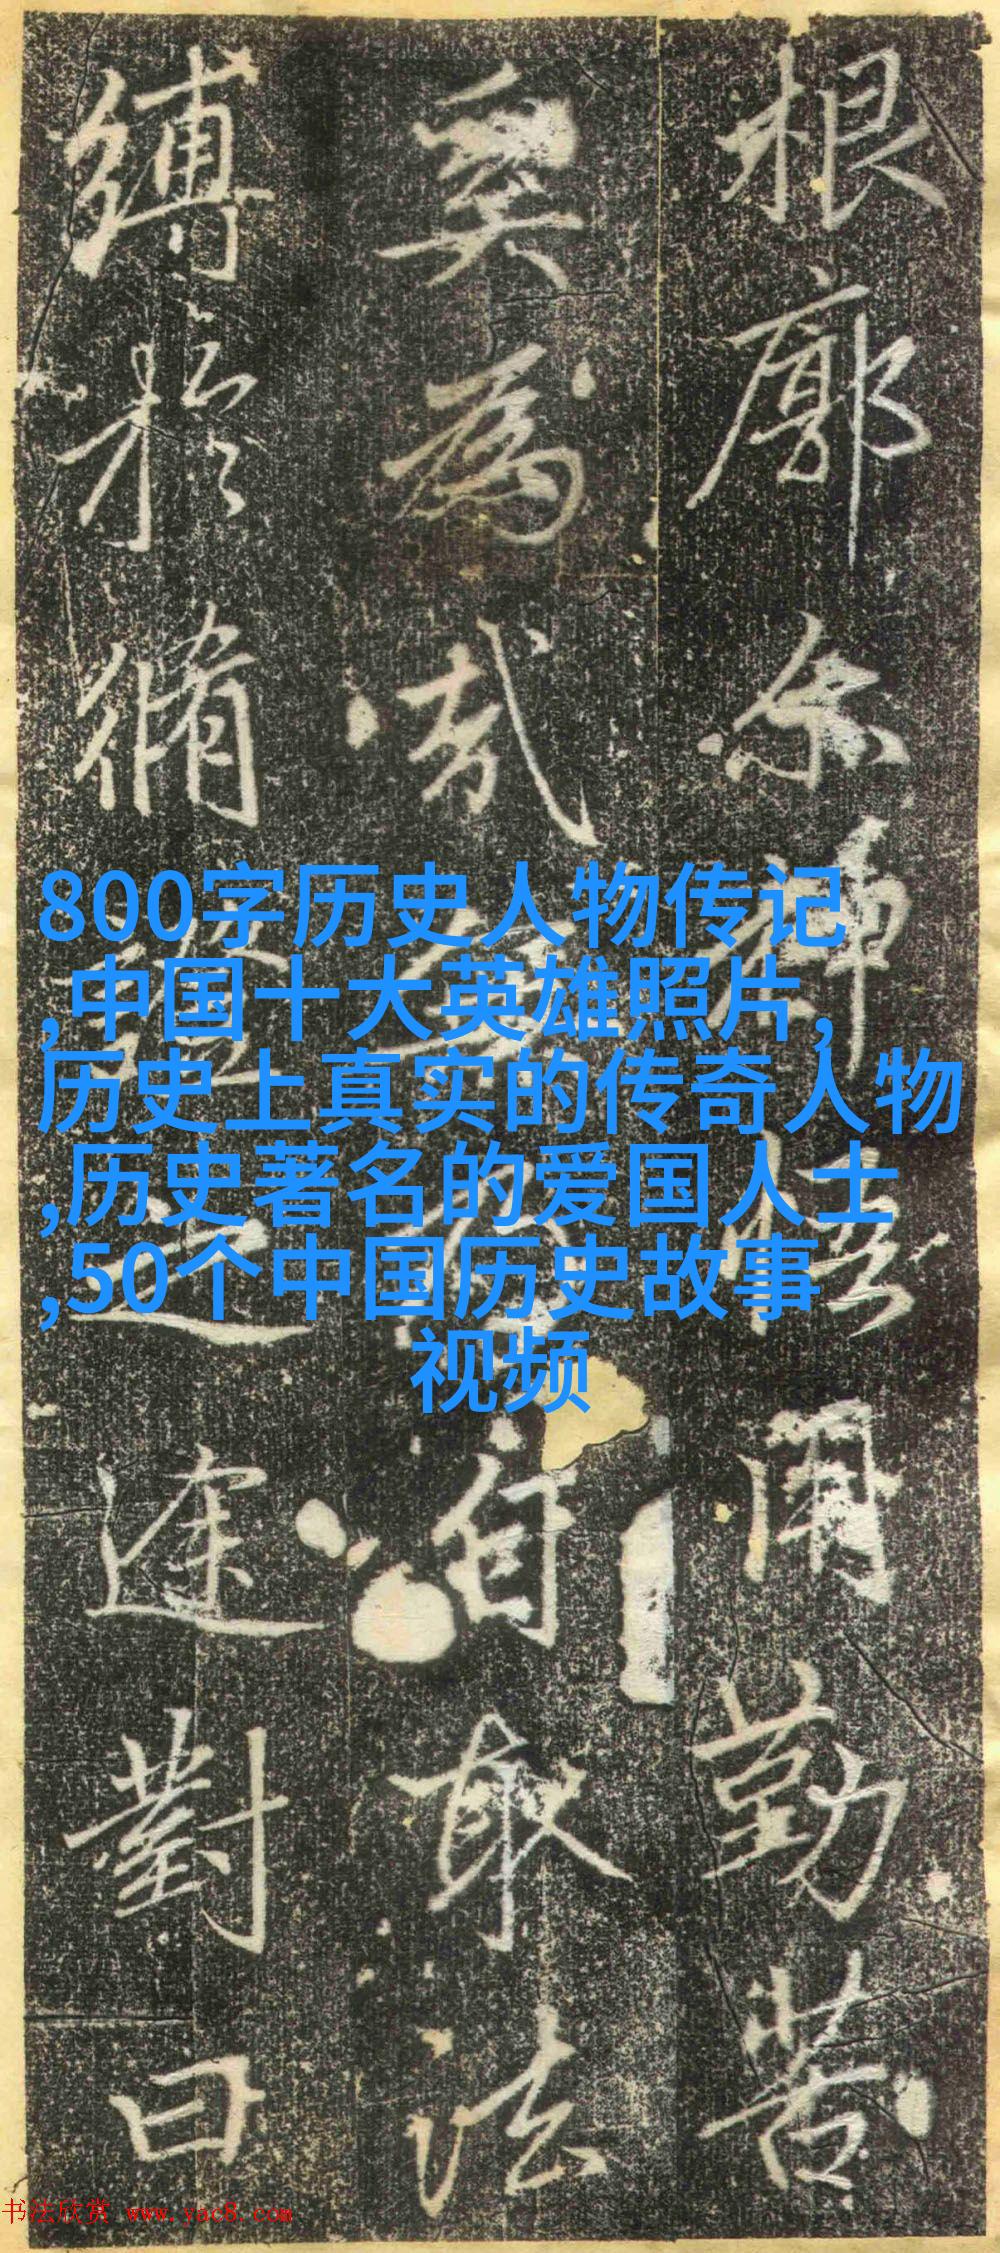 800字历史人物传记
,中国十大英雄照片,
历史上真实的传奇人物
,历史著名的爱国人士
,50个中国历史故事
视频
根廓尔神悟用勤苦
奚為自取法
縛於脩證之途對曰
书法欣赏 www.yac8.com